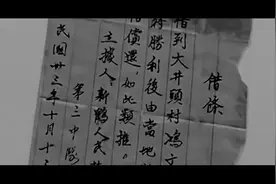 借條
借到大井頭村馮文
將勝利後由當地政
倍償還，如此類推。
立據人：新鶴人民
第三中隊
民國卅三年十月十